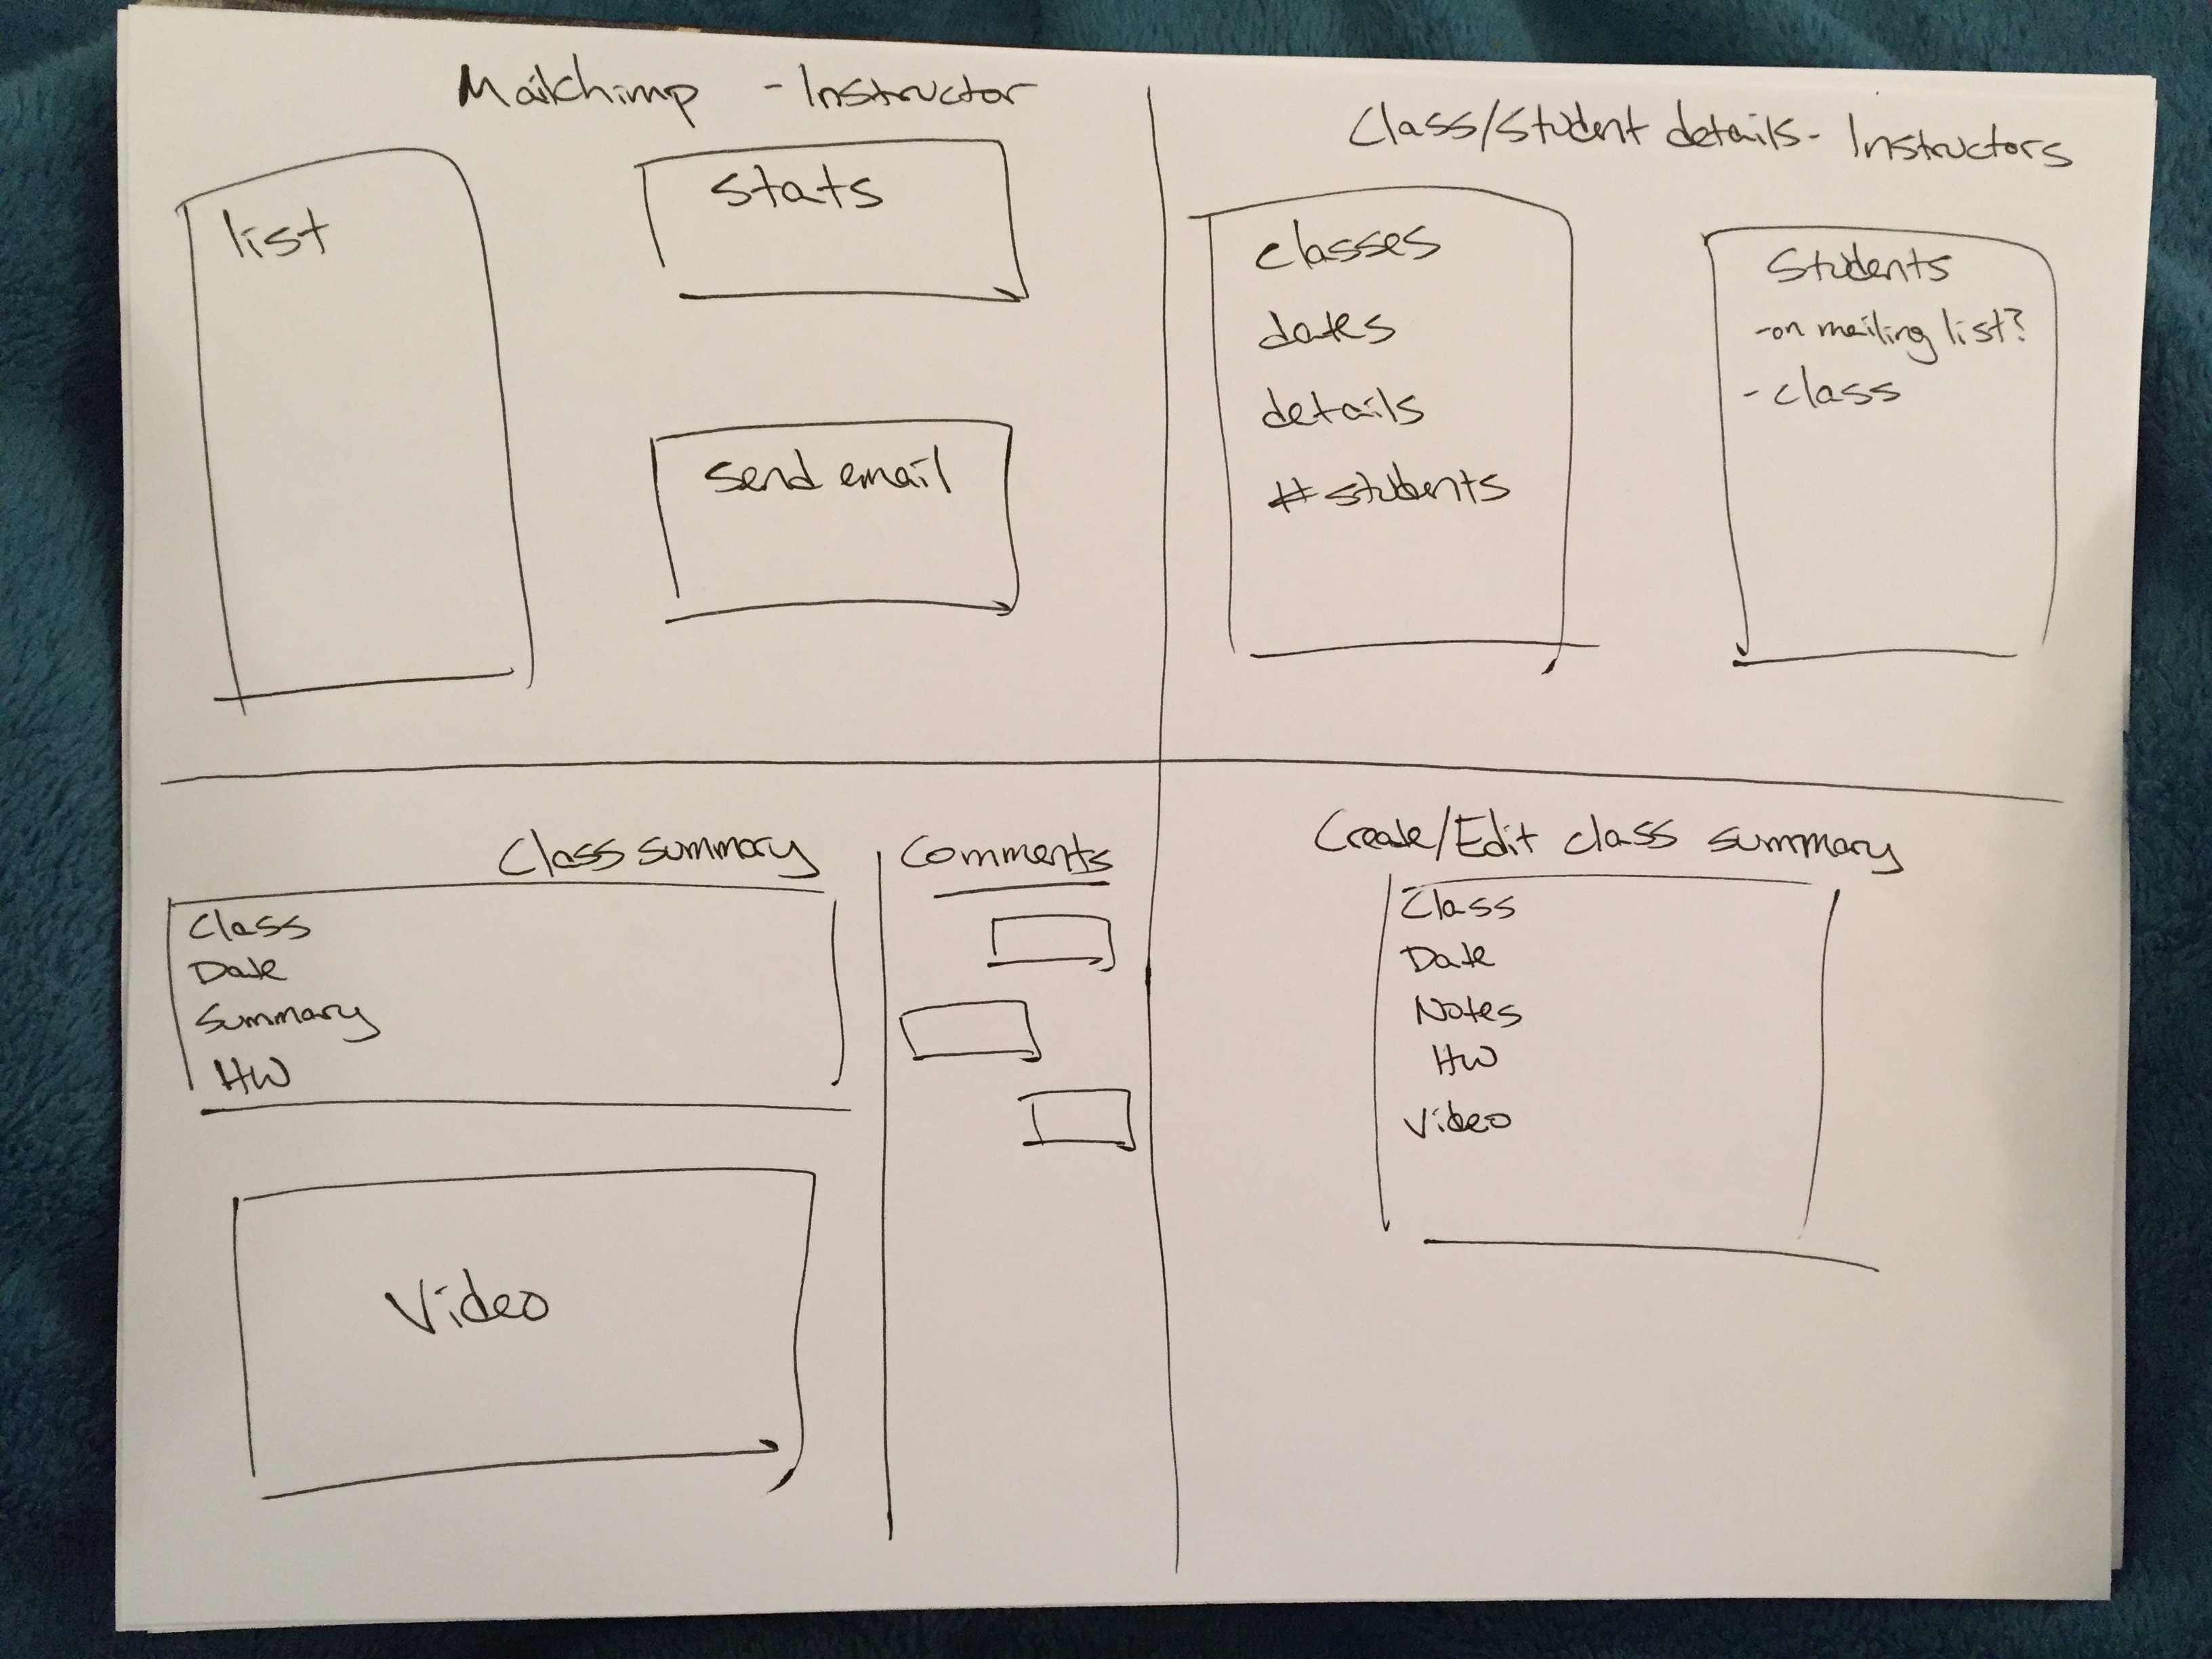 Mailchimp - Instructor
list
stats
send email
Class/Student details - Instructors
classes
dates
details
# students
Students
- on mailing list?
- class
Class summary
Class
Date
Summary
HW
Video
Comments
Create/Edit class summary
Class
Date
Notes
HW
Video